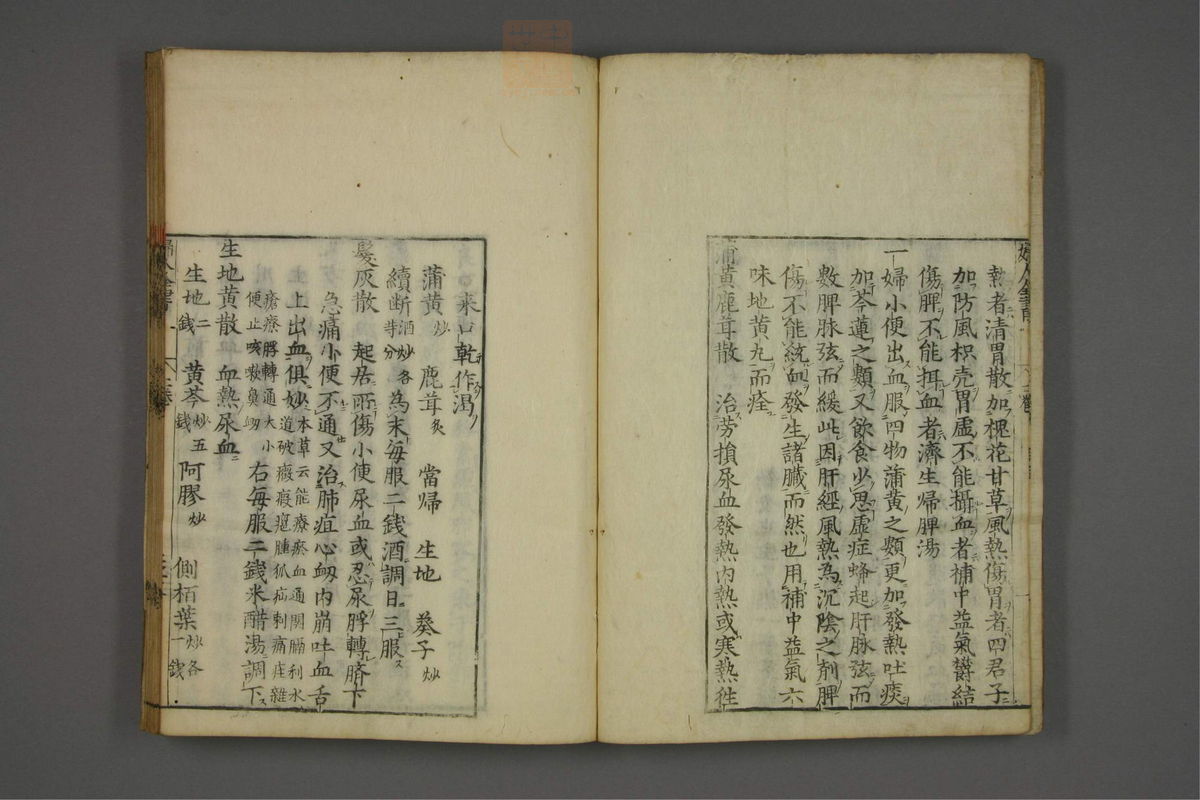 熱者清胃散加槐花甘草風熱傷胃者四君子
加防風枳壳胃虚不能攝血者補中益氣欝結
傷脾不能揖血者濟生帰脾湯
一婦小便出血服四物蒲黄之類更加發熱吐痰
加芩蓮之類又飲食少思虚症蜂起肝脉弦而
數脾脉弦而緩此因肝經風熱為沉陰之剤脾
傷不能統血發生諸臓而然也用補中益氣六
味地黄丸而痊
蒲黄鹿茸散 治労損尿血發熱内熱或寒熱徃
来口乾作渇
蒲黄炒 鹿茸炙 當帰 生地 葵子炒
續断酒炒各等分 為末毎服二錢酒調日三服
髪灰散 起居所傷小便尿血或忍尿脬轉臍下
急痛小便不通又治肺疽心衂内崩吐血舌
上出血俱妙本草云能療瘀血通関膈利水
道破癥瘕癰腫狐疝刺痛疰雜
瘡療脬轉通大小
便止咳嗽鼻衂 右毎服二錢米醋湯調下
生地黄散 血熱尿血
生地二錢 黄芩炒五錢 阿膠炒 側栢葉炒各一錢